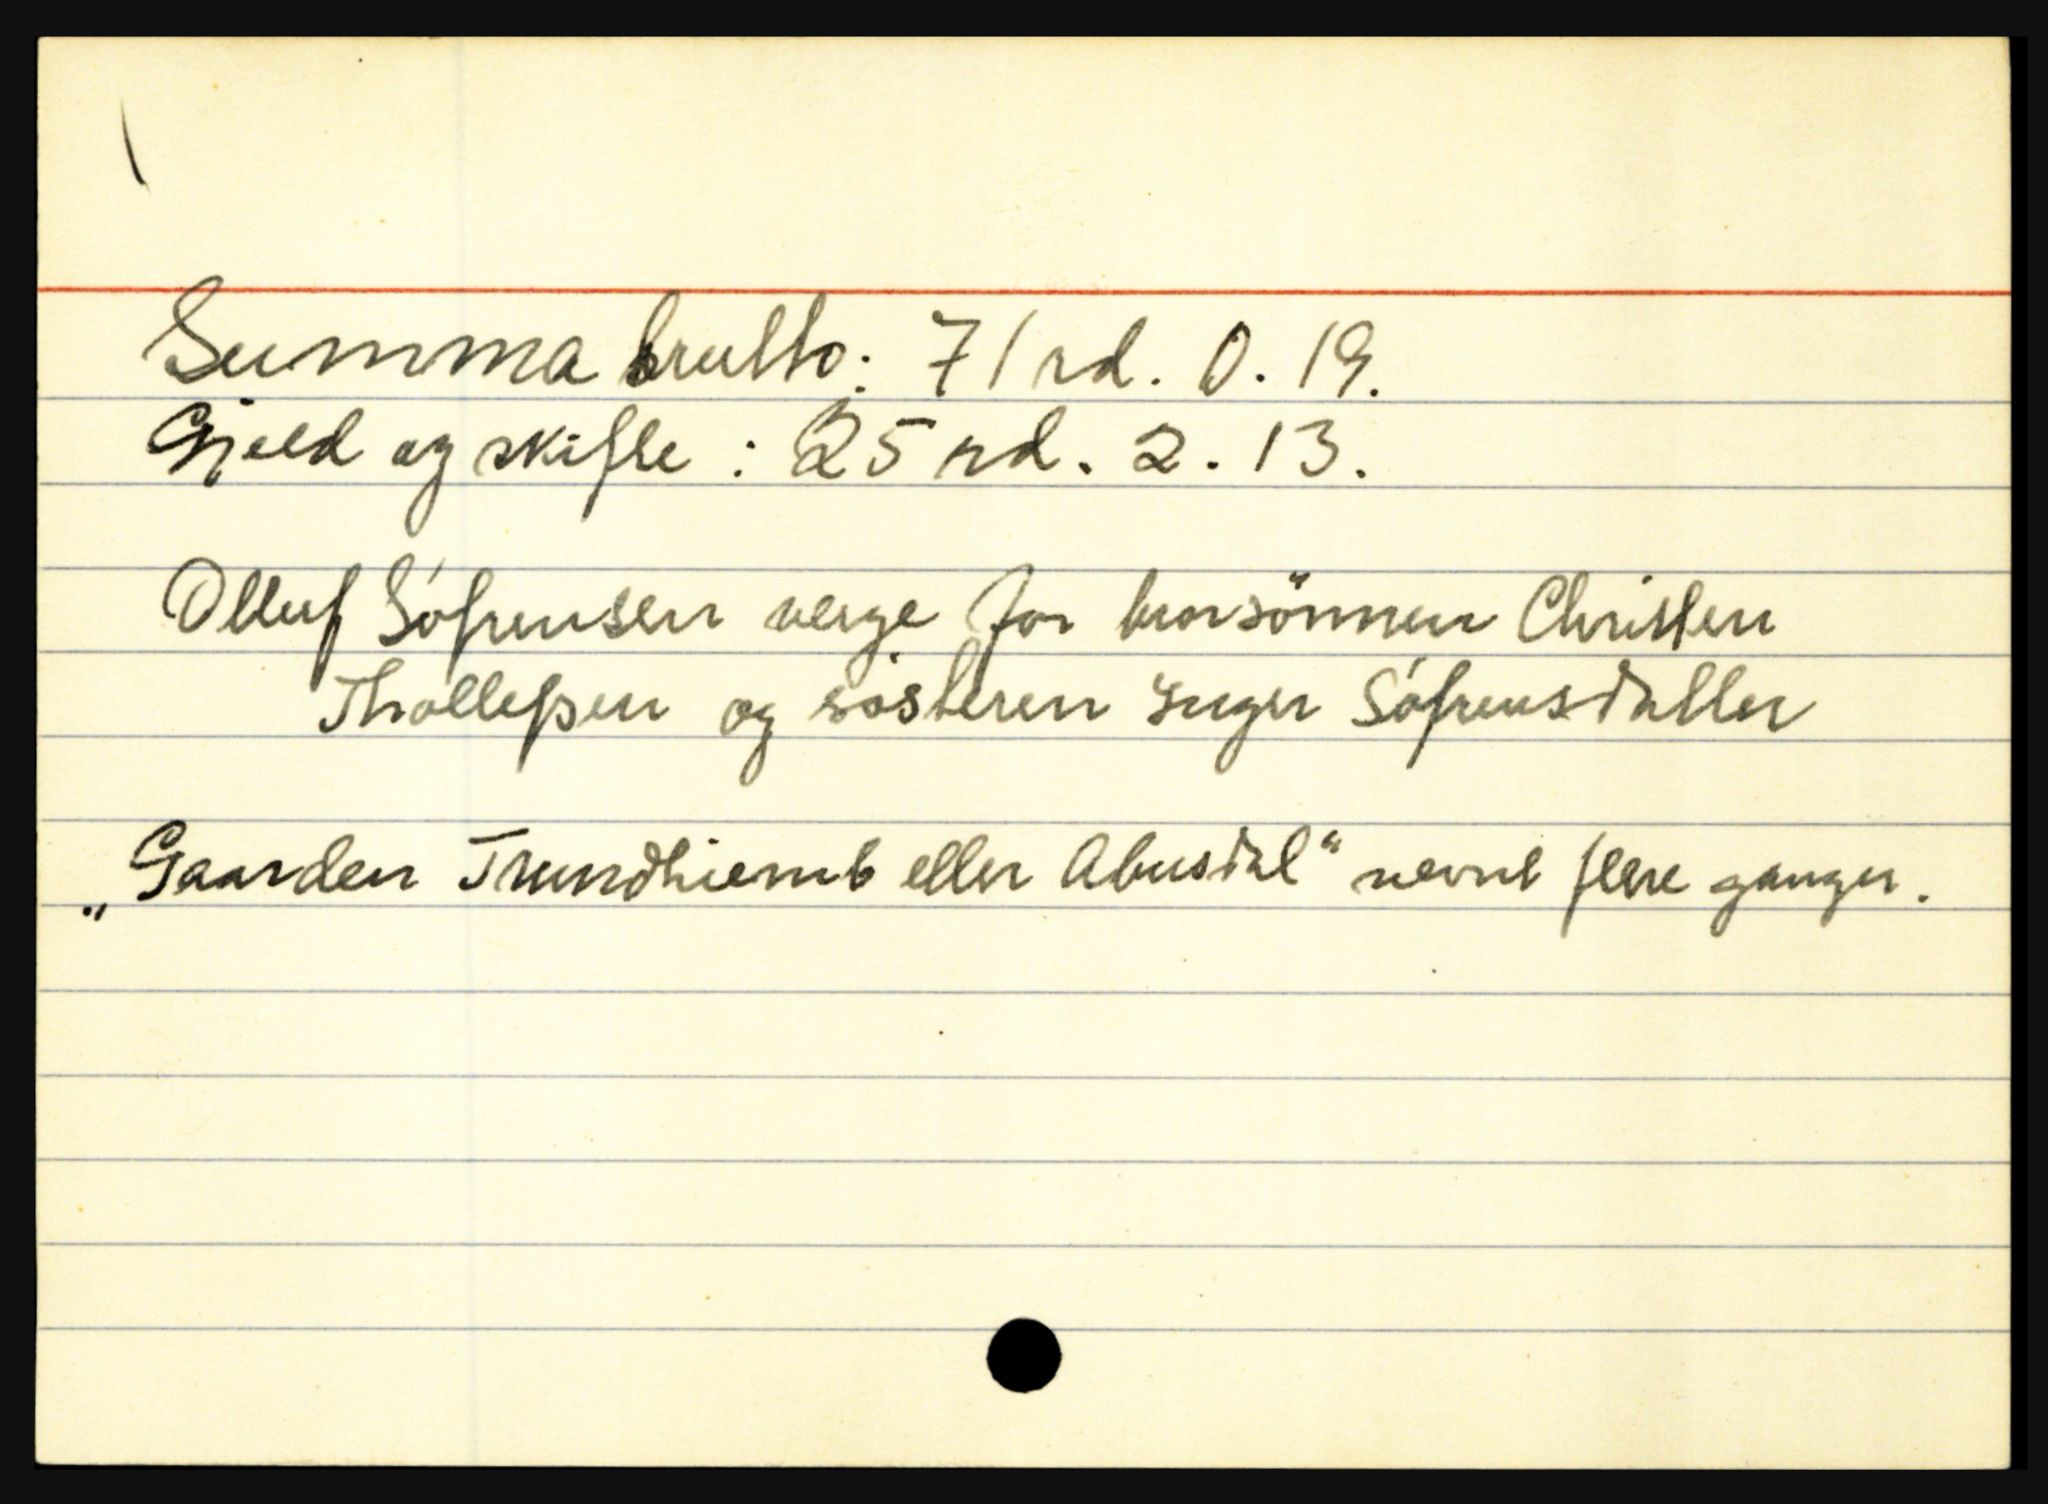 Summa brutto: 71 rd. 0. 19.
Gjeld og skifte: 25 rd. 2. 13.
Olluf Søfrensen verge for brorsönnen Christen
Thollefsen og søsteren Inger Søfrensdatter
„Gaarden Trundhiemb eller Abusdal“ nevnt flere ganger.